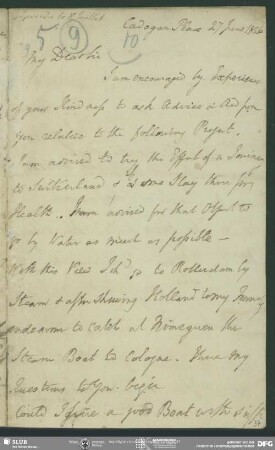 5 9 10
Cadogan Place 27 June 1836
My Dear Sir
I am encouraged by Experience
of your Kindness to ask Advice & Aid from
you relative to the following Project.
I am advised to try the Effect of a Journey
to Switzerland & some Stay there for
Health. I am advised for that Object to
go by Water as much as possible —
With this View I shd go to Rotterdam by
Steam & after Shewing Holland to my Family
endeavor to catch at Nimeguen the
Steam Boat to Cologne. There my
Questions to You begin
Could I hire a good Boat with
SLUB